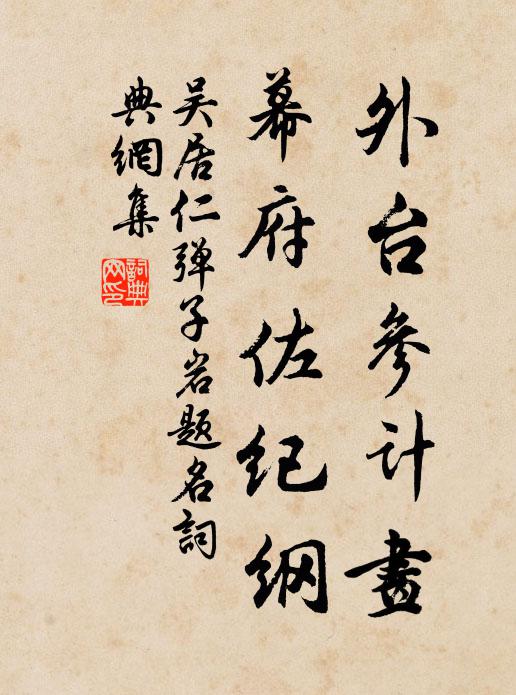 外台参计畫
幕府佐纪纲
吴居仁弹子岩题名詞
典網集
詞典
网印